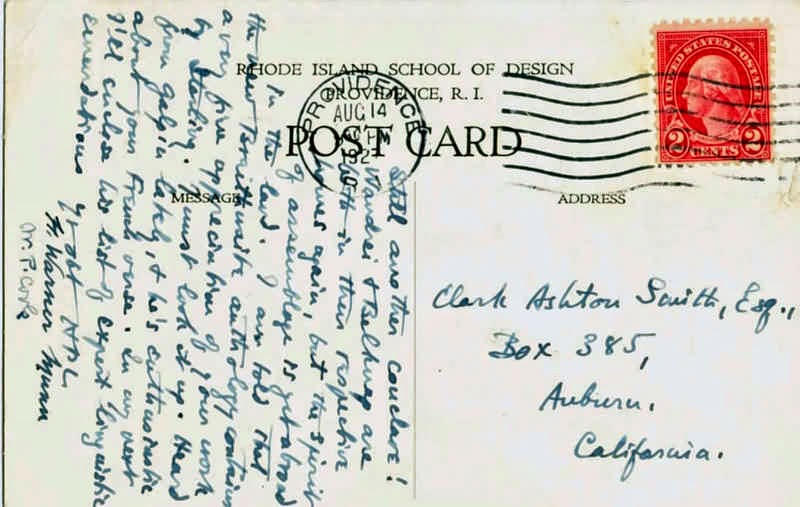 RHODE ISLAND SCHOOL OF DESIGN
PROVIDENCE, R. I.
POST CARD
PROVIDENCE
AUG 14
192
UNITED STATES POSTAGE
2 CENTS 2
MESSAGE
ADDRESS
Still another conclave!
Wandrei & Belknap are
both in their respective
homes again, but the spirit
of assemblage is yet abroad
in the land. I am told that
the new anthology contains
a very fine appreciation of your work
by Sterling. I must look it up. Heard
from Galpin lately, & he's enthusiastic
about your French verse. In my next
I'll enclose his list of expert linguistic
emendations
Yr obt HPL
H. Warner Munn
W. P. Cook
Clark Ashton Smith, Esq.,
Box 385,
Auburn,
California.